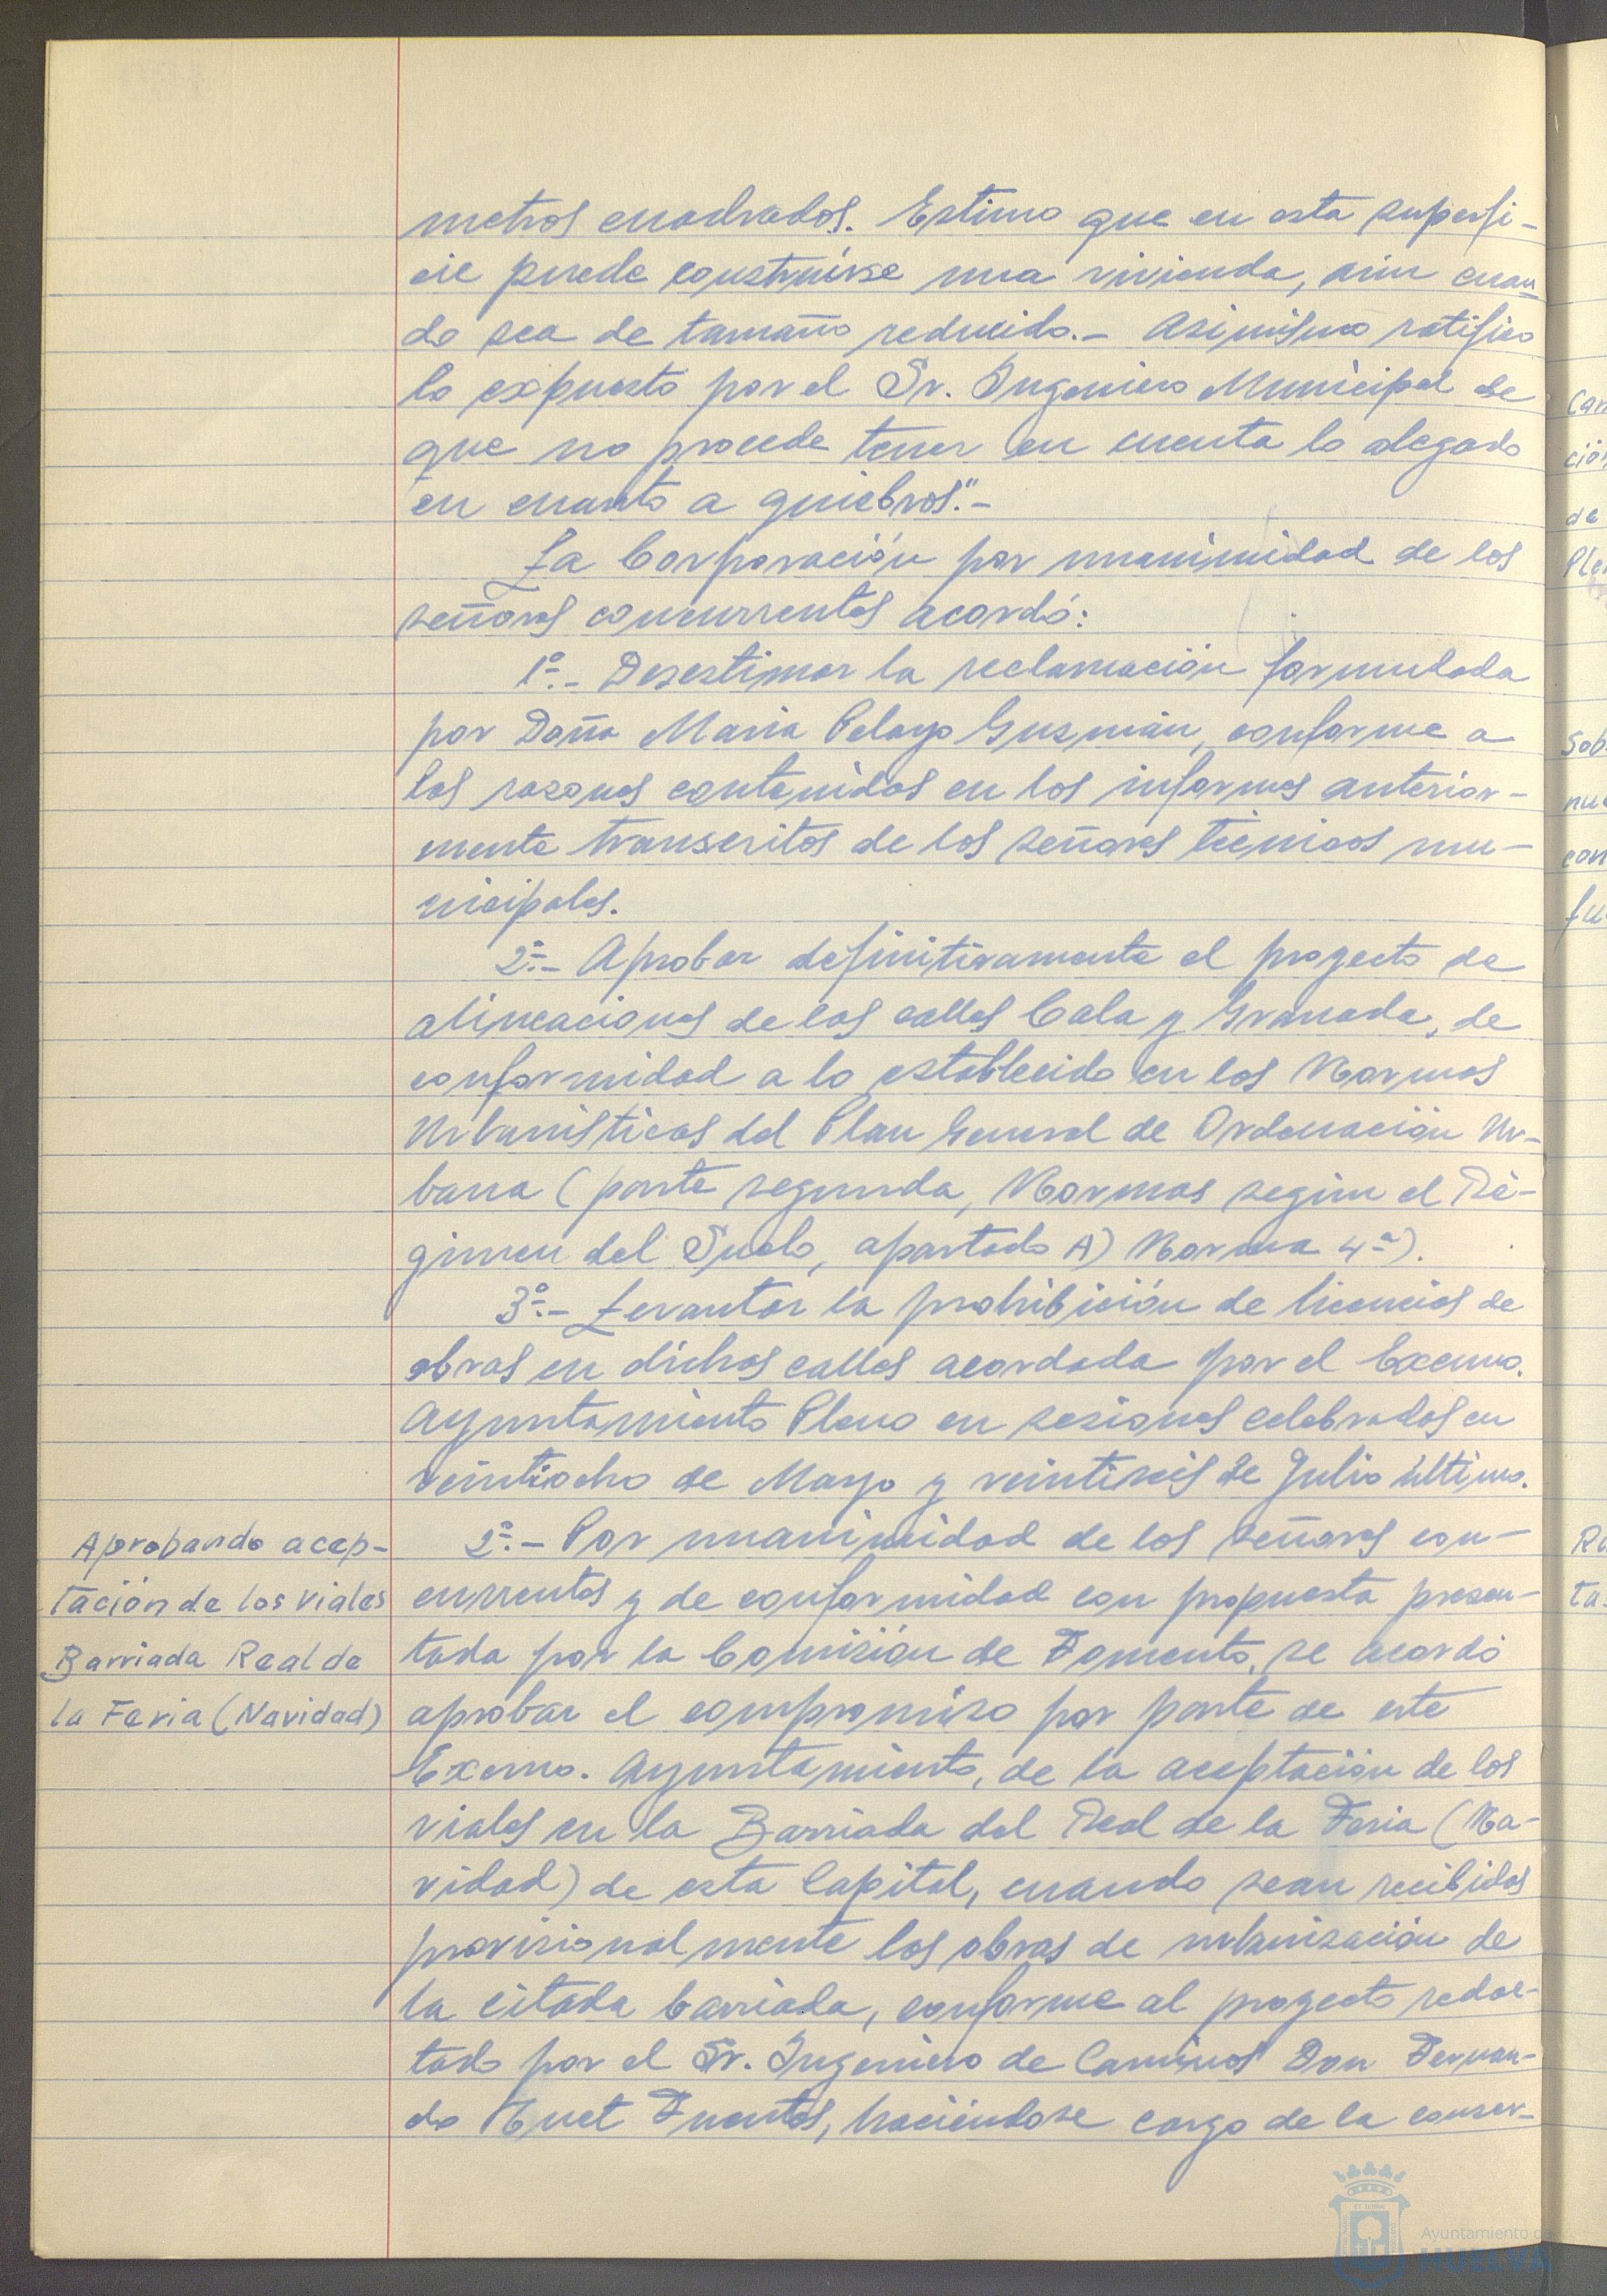 metros cuadrados. Estimo que en esta superfi-
cie puede construirse una vivienda, aún cuan-
do sea de tamaño reducido.- Asimismo ratifico
lo expuesto por el Sr. Ingeniero Municipal de
que no procede tener en cuenta lo alegado
en cuanto a quiebros".-
La Corporación por unanimidad de los
señores concurrentes acordó:
1º.- Desestimar la reclamación formulada
por Doña María Pelayo Guzmán, conforme a
las razones contenidas en los informes anterior-
mente transcritos de los señores técnicos mu-
nicipales.
2º.- Aprobar definitivamente el proyecto de
alineaciones de las calles Cala y Granada, de
conformidad a lo establecido en las Normas
Urbanísticas del Plan General de Ordenación Ur-
bana (parte segunda, Normas según el Ré-
gimen del Suelo, apartado A) Norma 4ª).
3º.- Levantar la prohibición de licencias de
obras en dichas calles acordada por el Excmo.
Ayuntamiento Pleno en sesiones celebradas en
veintiocho de Mayo y veintiseis de Julio último.
Aprobando acep-
tación de los viales
Barriada Real de
la Feria (Navidad)
2º.- Por unanimidad de los señores con-
currentes y de conformidad con propuesta presen-
tada por la Comisión de Fomento, se acordó
aprobar el compromiso por parte de este
Excmo. Ayuntamiento, de la aceptación de los
viales en la Barriada del Real de la Feria (Na-
vidad) de esta Capital, cuando sean recibidas
provisionalmente las obras de urbanización de
la citada barriada, conforme al proyecto redac-
tado por el Sr. Ingeniero de Caminos Don Fernan-
do Fuentes, haciéndose cargo de la conser-
Ayuntamiento de
HUELVA